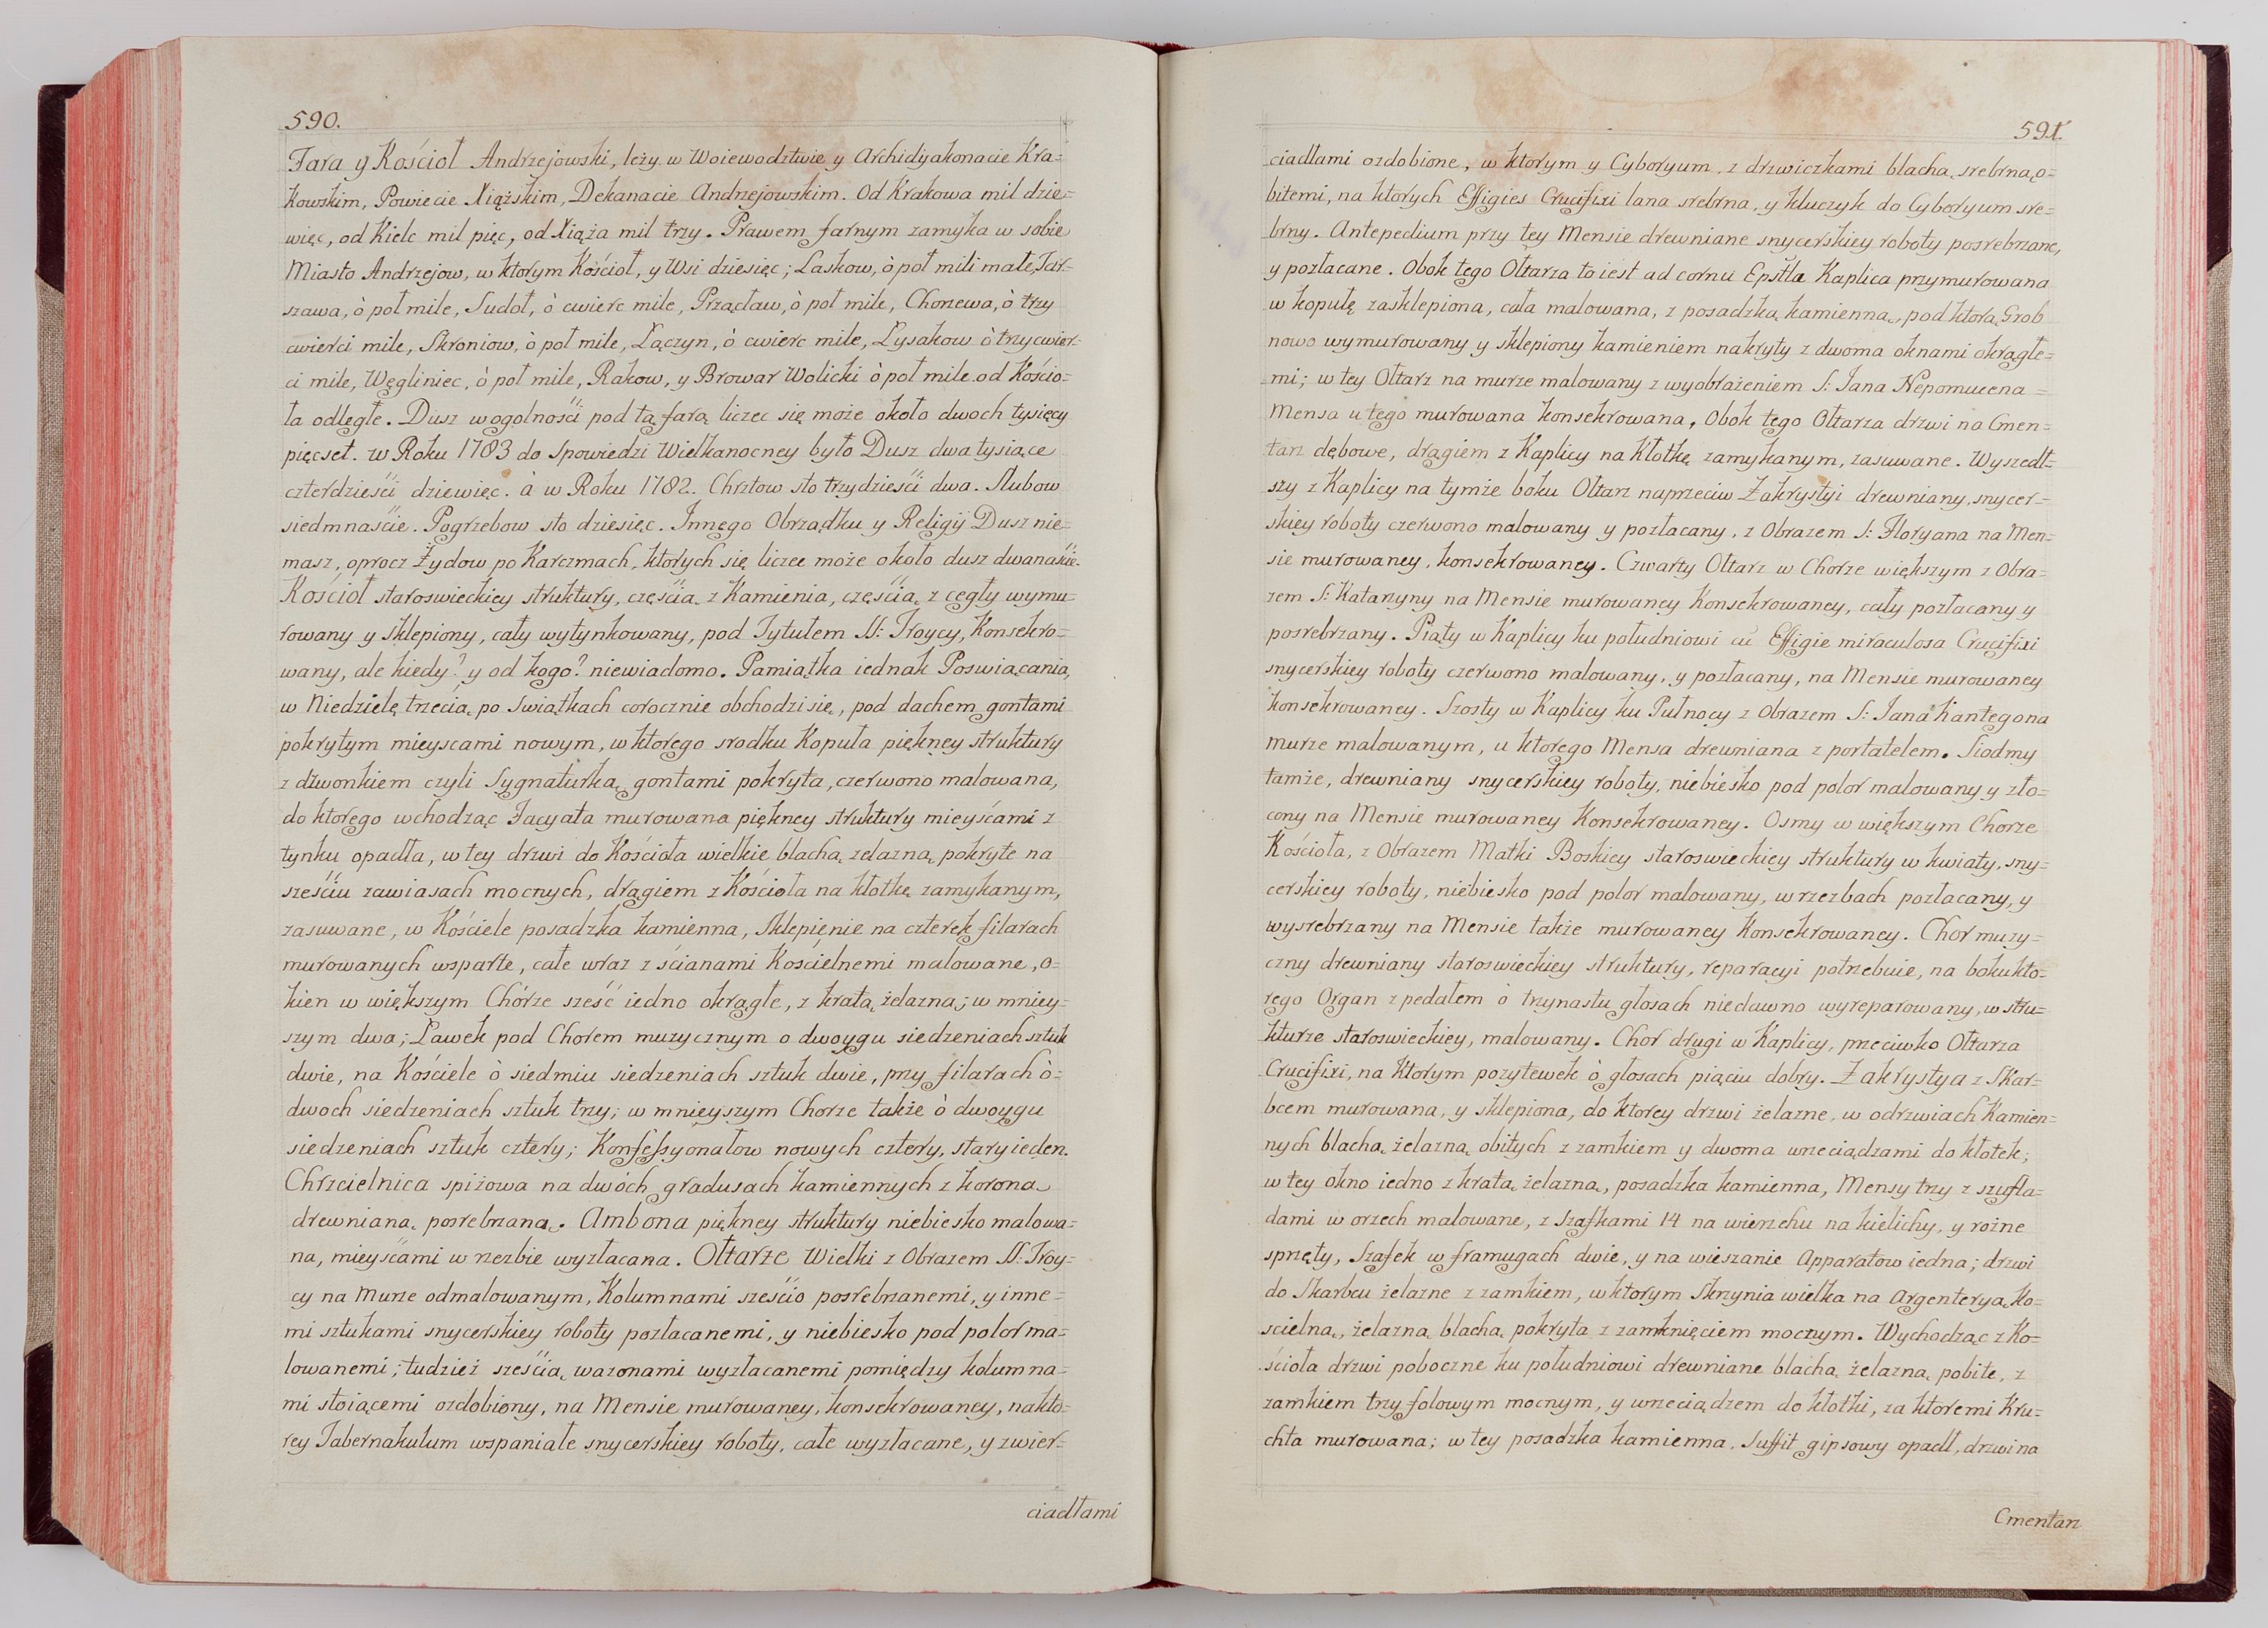 590.
Fara y Kościoł Andrzejowski, leży w Woiewodztwie y Archidyakonacie Kra=
kowskim, Powiecie Xiążskim, Dekanacie Andrzejowskim. Od Krakowa mil dzie=
więc, od Kielc mil pięc, od Xiąża mil trzy. Prawem farnym zamyka w sobie
Miasto Andrzejow, w ktorym Kościoł, y Wsi dziesięc; Laskow, ò poł mili małe, Tar=
szawa, ò poł mile, Sudoł, ò cwierc mile, Prząsław, ò poł mile, Chorzewa, ò trzy
cwierci mile, Skroniow, ò poł mile, Łączyn, ò cwierc mile, Łysakow ò trzy cwier=
ci mile, Węgliniec, ò poł mile, Rakow, y Browar Wolicki ò poł mile od Kościo=
ła odległe. Dusz wogolności pod tą farą liczec się może około dwoch tysięcy
pięcset. w Roku 1783 do Spowiedzi Wielkanocney było Dusz dwa tysiące
czterdzieści dziewięc. à w Roku 1782. Chrztow sto trzydzieści dwa. Slubow
siedmnaście. Pogrzebow sto dziesięc. Innego Obrządku y Religij Dusz nie=
masz, oprocz Żydow po Karczmach, ktorych się liczec może około dusz dwanaście.
Kościoł staroswieckiey struktury, częścią z Kamienia, częścią z cegły wymu=
rowany y Sklepiony, cały wytynkowany, pod Tytułem SS: Troycy, Konsekro=
wany, ale kiedy? y od kogo? niewiadomo. Pamiątka iednak Poswiącania,
w Niedzielę trzecią po Swiątkach corocznie obchodzi się, pod dachem gontami
pokrytym mieyscami nowym, w ktorego srodku Kopuła piękney struktury
z dzwonkiem czyli Sygnaturką gontami pokryta, czerwono malowana,
do ktorego wchodząc Facyata murowana piękney struktury mieyscami z
tynku opadła, w tey drzwi do Kościoła wielkie blachą zelazną pokryte na
sześciu zawiasach mocnych, drągiem z Kościoła na kłotkę zamykanym,
zasuwane, w Kościele posadzka kamienna, Sklepienie na czterek filarach
murowanych wsparte, całe wraz z ścianami Koscielnemi malowane, o=
kien w większym Chórze sześć iedno okrągłe, z kratą żelazną; w mniey=
szym dwa; Ławek pod Chorem muzycznym o dwoygu siedzeniach sztuk
dwie, na Kościele ò siedmiu siedzeniach sztuk dwie, przy filarach ò=
dwoch siedzeniach sztuk trzy; w mnieyszym Chorze także ò dwoygu
siedzeniach sztuk cztery; Konfessyonałow nowych cztery, stary ieden.
Chrzcielnica spiżowa na dwoch gradusach kamiennych z koroną
drewnianą posrebrzaną. Ambona piękney struktury niebiesko malowa=
na, mieyscami w rzezbie wyzłacana. Ołtarze Wielki z Obrazem SS: Troy=
cy na Murze odmalowanym, Kolumnami sześcio posrebrzanemi, y inne=
mi sztukami snycerskiey roboty pozłacanemi, y niebiesko pod polor ma=
lowanemi; tudzież sześcią wazonami wyzłacanemi pomiędzy kolumna=
mi stoiącemi ozdobiony, na Mensie murowaney, konsekrowaney, na kto=
rey Tabernakulum wspaniałe snycerskiey roboty, całe wyzłacane, y zwier=
ciadłami
591.
ciadłami ozdobione, w ktorym y Cyboryum, z drzwiczkami blachą srebrną o=
bitemi, na ktorych Effigies Crucifixi lana srebrna, y kluczyk do Cyboryum sre=
brny. Antepedium przy tey Mensie drewniane snycerskiey roboty posrebrzane,
y pozłacane. Obok tego Ołtarza to iest ad cornu Epstla Kaplica przymurowana
w kopułę zasklepiona, cała malowana, z posadzką kamienną, pod ktorą Grob
nowo wymurowany y sklepiony kamieniem nakryty z dwoma oknami okrągłe=
mi; w tey Ołtarz na murze malowany z wyobrażeniem S: Jana Nepomucena =
Mensa u tego murowana konsekrowana, Obok tego Ołtarza drzwi na Cmen=
tarz dębowe, drągiem z Kaplicy na Kłotkę zamykanym, zasuwane. Wyszedł=
szy z Kaplicy na tymże boku Ołtarz naprzeciw Zakrystyi drewniany, snycer=
skiey roboty czerwono malowany y pozłacany, z Obrazem S: Floryana na Men=
sie murowaney, konsekrowaney. Czwarty Ołtarz w Chorze większym z Obra=
zem S: Katarzyny na Mensie murowaney Konsekrowaney, cały pozłacany y
posrebrzany. Piąty w Kaplicy ku południowi cū Effigie miraculosa Crucifixi
snycerskiey roboty czerwono malowany, y pozłacany, na Mensie murowaney
konsekrowaney. Szosty w Kaplicy ku Pułnocy z Obrazem S: Jana Kantego na
murze malowanym, u ktorego Mensa drewniana z portatelem. Siodmy
tamże, drewniany snycerskiey roboty, niebiesko pod polor malowany y zło=
cony na Mensie murowaney Konsekrowaney. Osmy w większym Chorze
Kościoła, z Obrazem Matki Boskiey staroswieckiey struktury w kwiaty, sny=
cerskiey roboty, niebiesko pod polor malowany, w rzezbach pozłacany, y
wysrebrzany na Mensie także murowaney Konsekrowaney. Chor muzy=
czny drewniany staroswieckiey struktury, reparacyi potrzebuie, na boku kto=
rego Organ z pedałem ò trzynastu głosach niedawno wyreparowany, w stru=
kturze staroswieckiey, malowany. Chor drugi w Kaplicy, przeciwko Ołtarza
Crucifixi, na Ktorym pozytewek ò głosach piąciu dobry. Zakrystya z Skar=
bcem murowana, y sklepiona, do ktorey drzwi żelazne, w odrzwiach Kamien=
nych blachą żelazną obitych z zamkiem y dwoma wrzeciądzami do kłotek;
w tey okno iedno z kratą żelazną, posadzka kamienna, Mensy trzy z szufla=
dami w orzech malowane, z Szafkami 14 na wierzchu na kielichy, y rożne
sprzęty, Szafek w framugach dwie, y na wieszanie Apparatow iedna; drzwi
do Skarbcu żelazne z zamkiem, w ktorym Skrzynia wielka na Argenteryą Ko=
scielną, żelazną blachą pokryta z zamknięciem mocnym. Wychodząc z Ko=
ścioła drzwi poboczne ku południowi drewniane blachą żelazną pobite, z
zamkiem trzyfolowym mocnym, y wrzeciądzem do kłotki, za ktoremi Kru=
chta murowana; w tey posadzka kamienna, Suffit gipsowy opadł, drzwi na
Cmentarz